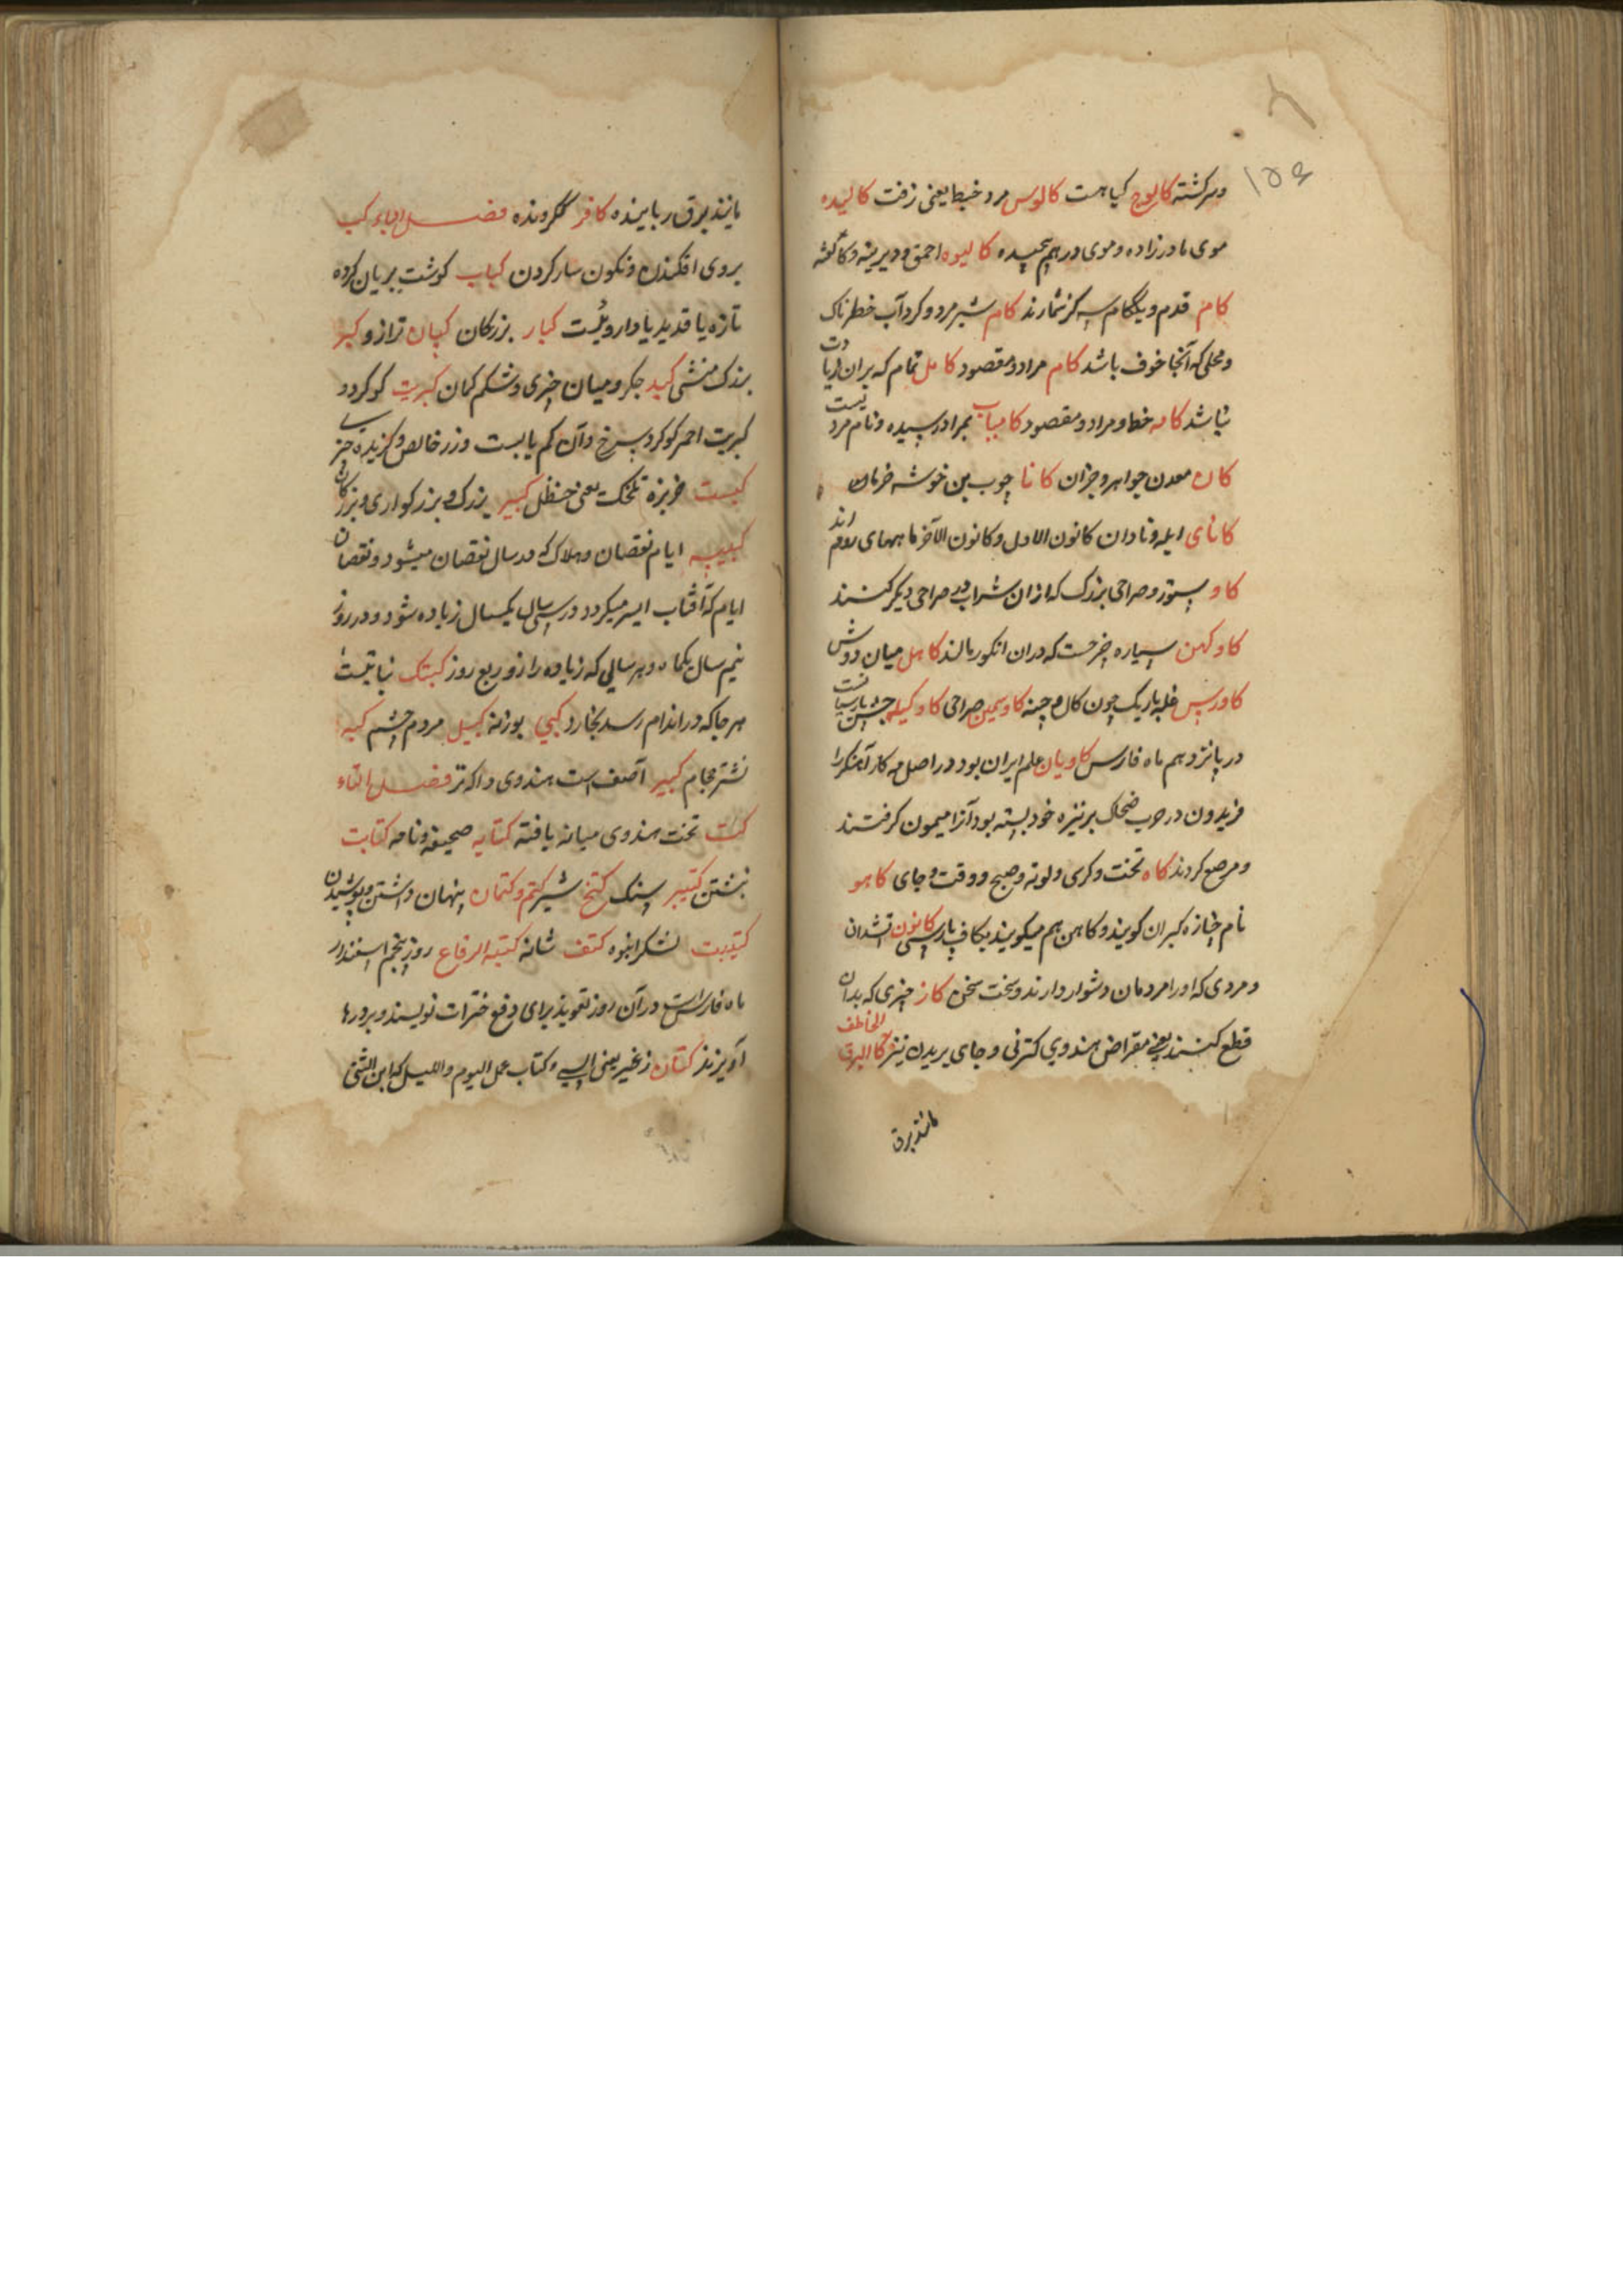 ۱۵۶
وسرگشته کالوج گیاهست کالوس مرد خبط یعنی زفت کالیده
موی مادرزاده و موی درهم پیچیده کالیوه احمق و دیرینه و
کام قدم و یک کام سه گز شمارند کام شیر مرد و گرداب خطرناک
و محلی که آنجا خوف باشد کام مراد و مقصود کامل تمام که بران زیادت
نباشد کامه خط و مراد و مقصود کامیاب بمراد رسیده و نام مردیست
کان معدن جواهر و جزان کانا چوب بن خوشه خرما
کانای ابله و نادان کانون الاول و کانون الآخر ماههای روم اند
کاو ستور و صراحی بزرک که ازان شراب در صراحی دیکر کنند
کاوکهن سیاره چرخست که دران انکور مالند کاهل میان دوش
کاورس غله باریک چون کال و چینه کاوسیمین صراحی کاوکیله جشن پارسیانست
در پانزدهم ماه فارس کاویان علم ایران بود در اصل مه کار آهنکرا
فریدون در حرب ضحاک بر نیزه خود بسته بود آنرا میمون کرفتند
و مرصع کردند کاه تخت و کرسی و لوته و صبح و وقت و جای کاهو
نام جنازه کبران کویند و کاهن هم میکویند بکاف پارسی کانون آتشدان
و مردی که اورا مردمان دشوار دارند و سخت سخن کاز چیزی که بدان
قطع کنند یعنی مقراض هندوی کترنی و جای بریدن نیز کالبرق الخاطف
مانند برق
مانند برق رباینده کافر نگرونده فصل الباء کب
بروی افکندن و نکون سار کردن کباب کوشت بریان کرده
تازه یا قدید یا داروئیست کبار بزرکان کپان ترازو کبر
بزرک منشی کبد جکر و میان چیزی و شکم کمان کبریت کوکرد و
کبریت احمر کوکرد سرخ و آن کم یابست و زر خالص و کزیده چیز
کبست خربزه تلخک یعنی حنظل کبیر بزرک و بزرکواری و بزرکان
کبیسه ایام نقصان و هلاک که در سال نقصان میشود و نقصان
ایام که آفتاب ایسر میکردد در سی سال یکسال زیاده شود و در روز
نیم سال یکماه و هر سالی که زیاده را از و ربع روز کبتک نباتیست
هر جا که در اندام رسد بخارد کبی بوزنه کبیل مردم چشم
نشتر حجام کبیر آصف است هندوی داکتر فصل التاء
کت تخت هندوی میانه یافته کتابه صحیفه و نامه کتابت
نبشتن کتیر سنک کتخ شیر کتم و کتمان پنهان داشتن و پوشیدن
کتیبت لشکر انبوه کتف شانه کتبة الرقاع روز پنجم اسفندار
ماه فارس است در آن روز تعویذ برای دفع حشرات نویسند و بر درها
آویزند کتان زغیر یعنی السی و کتاب عمل الیوم و اللیل که ابن السنی